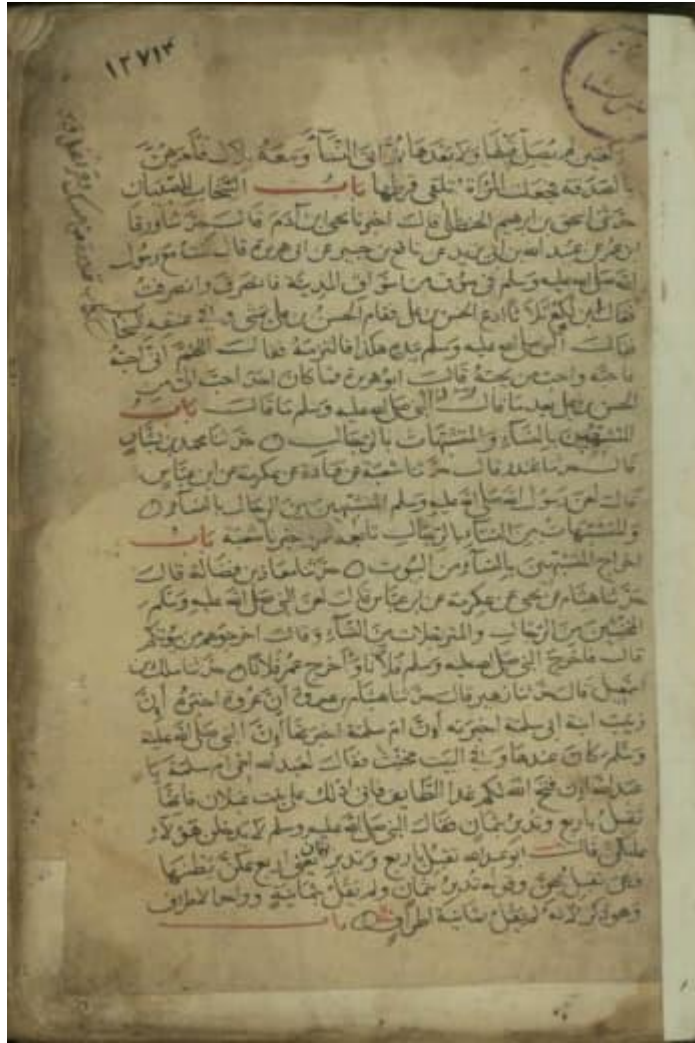 ١٢٧١٤
ركعتين لم يصل قبلها ولا بعدها ثم اتى النسآء ومعه بلال فأمرهن
بالصدقة فجعلت المرأة تلقي قرطها باب السخاب للصبيان
حدثني اسحق بن ابراهيم الحنظلي قال اخبرنا يحيى ابن آدم قال حدثنا ورقا
ابن عمر عن عبيد الله بن ابي يزيد عن نافع بن جبير عن ابي هريرة قال كنت مع رسول
الله صلى الله عليه وسلم في سوق من اسواق المدينة فانصرف وانصرفت
فقال اين لكع ثلاثا ادع الحسن بن علي فقام الحسن بن علي يمشي وفي عنقه السخاب
فقال النبي صلى الله عليه وسلم بيده هكذا فالتزمه فقال اللهم اني احبه
فاحبه واحب من يحبه قال ابو هريرة فما كان احد احب الي من
الحسن بن علي بعد ما قال النبي صلى الله عليه وسلم ما قال باب
المتشبهين بالنسآء والمتشبهات بالرجال حدثنا محمد بن بشار
قال حدثنا غندر قال حدثنا شعبة عن قتادة عن عكرمة عن ابن عباس
قال لعن رسول الله صلى الله عليه وسلم المتشبهين من الرجال بالنسآء
والمتشبهات من النسآء بالرجال تابعه عمرو اخبرنا شعبة باب
اخراج المتشبهين بالنسآء من البيوت حدثنا معاذ بن فضالة قال
حدثنا هشام عن يحيى عن عكرمة عن ابن عباس قال لعن النبي صلى الله عليه وسلم
المخنثين من الرجال والمترجلات من النسآء وقال اخرجوهم من بيوتكم
قال فاخرج النبي صلى الله عليه وسلم فلانا واخرج عمر فلانا حدثنا ملك بن
اسمعيل قال حدثنا زهير قال حدثنا هشام بن عروة أن عروة اخبره أن
زينب ابنة ابي سلمة اخبرته أن ام سلمة اخبرتها أن النبي صلى الله عليه
وسلم كان عندها وفي البيت مخنث فقال لعبد الله اخي ام سلمة يا
عبد الله إن فتح الله لكم غدا الطايف فاني ادلك على بنت غيلان فانها
تقبل باربع وتدبر بثمان فقال النبي صلى الله عليه وسلم لا يدخلن هؤلاء
عليكن قال ابو عبد الله تقبل باربع وتدبر بثمان يعني اربع عكن بطنها
فهي تقبل بهن وقوله وتدبر بثمان ولم يقل بثمانية وواحد الاطراف
وهو ذكر لانه لم يقل ثمانية اطراف باب